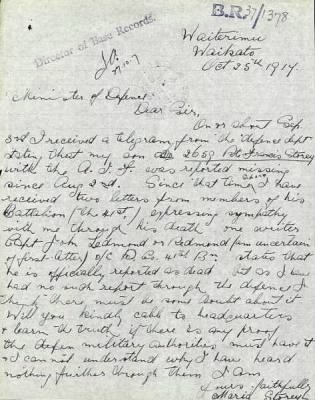 B.R. 37/1378
Director of Base Records.
Waiterimu
Waikato
Oct 25th 1917
Minister of Defence
Dear Sir,
On or about Sep.
3rd I received a telegram from the defence dept
that my son 2658 Pte Francis Storey
with the A.I.F. was reported missing
since Aug 2nd. Since that time I have
received two letters from members of his
Battalion (the 41st) expressing sympathy
with me through his death one writer
Capt John Ledmond or Redmond (am uncertain
of first letter) o/c D. Co. 41st Bn. states that
he is officially reported as dead but as I have
had no such report through the defence I
think there must be some doubt about it
Will you kindly cable to headquarters
& learn the truth, if there is any proof
the defen military authorities must have it
& I cannot understand why I have heard
nothing further through them I am
Yours faithfully
Maria Storey